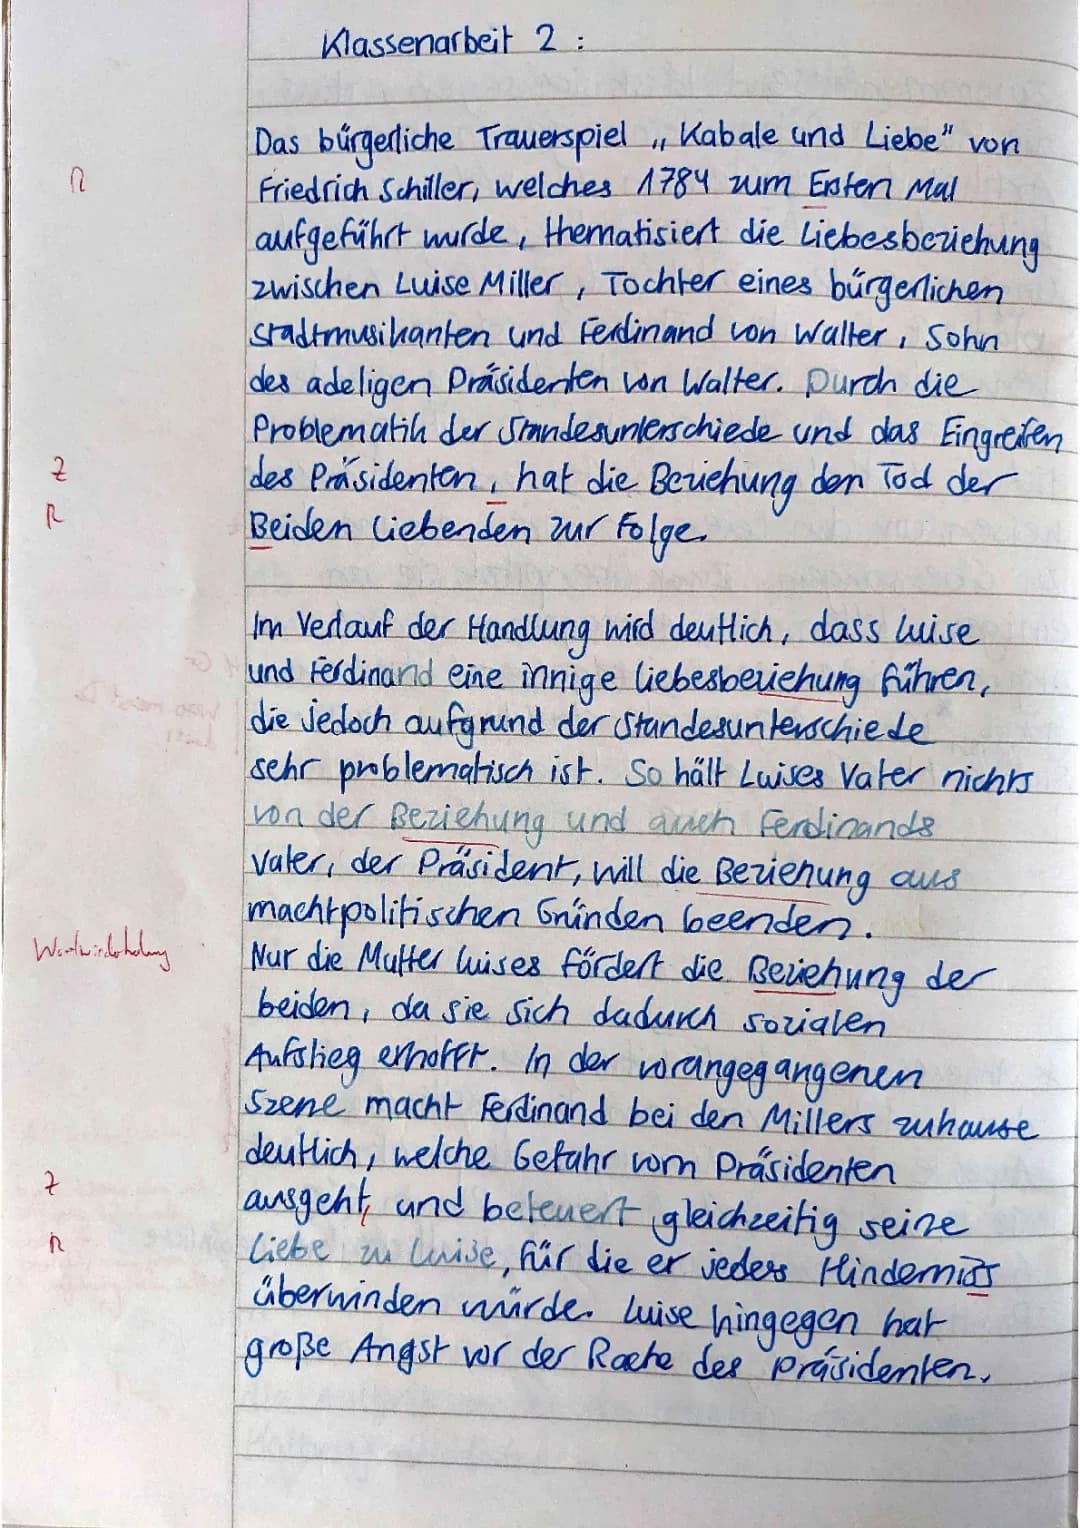 Klassenarbeit 2 :
Das bürgerliche Trauerspiel „Kabale und Liebe" von
R
Friedrich Schiller, welches 1784 zum Ersten Mal
aufgeführt wurde, thematisiert die Liebesbeziehung
zwischen Luise Miller, Tochter eines bürgerlichen
Stadtmusikanten und Ferdinand von Walter, Sohn
des adeligen Präsidenten von Walter. Durch die
Problematik der Standesunterschiede und das Eingreifen
Z
des Präsidenten, hat die Beziehung den Tod der
R
Beiden Liebenden zur Folge.
Im Verlauf der Handlung wird deutlich, dass Luise
und Ferdinand eine innige Liebesbeziehung führen,
die jedoch aufgrund der Standesunterschiede
sehr problematisch ist. So hält Luises Vater nichts
von der Beziehung und auch Ferdinands
Vater, der Präsident, will die Beziehung aus
machtpolitischen Gründen beenden.
Wortwiederholung
Nur die Mutter Luises fördert die Beziehung der
beiden, da sie sich dadurch sozialen
Aufstieg erhofft. In der vorangegangenen
Szene macht Ferdinand bei den Millers zuhause
deutlich, welche Gefahr vom Präsidenten
Z
ausgeht, und beteuert gleichzeitig seine
R
Liebe zu Luise, für die er jedes Hinderniss
überwinden würde. Luise hingegen hat
große Angst vor der Rache des Präsidenten.